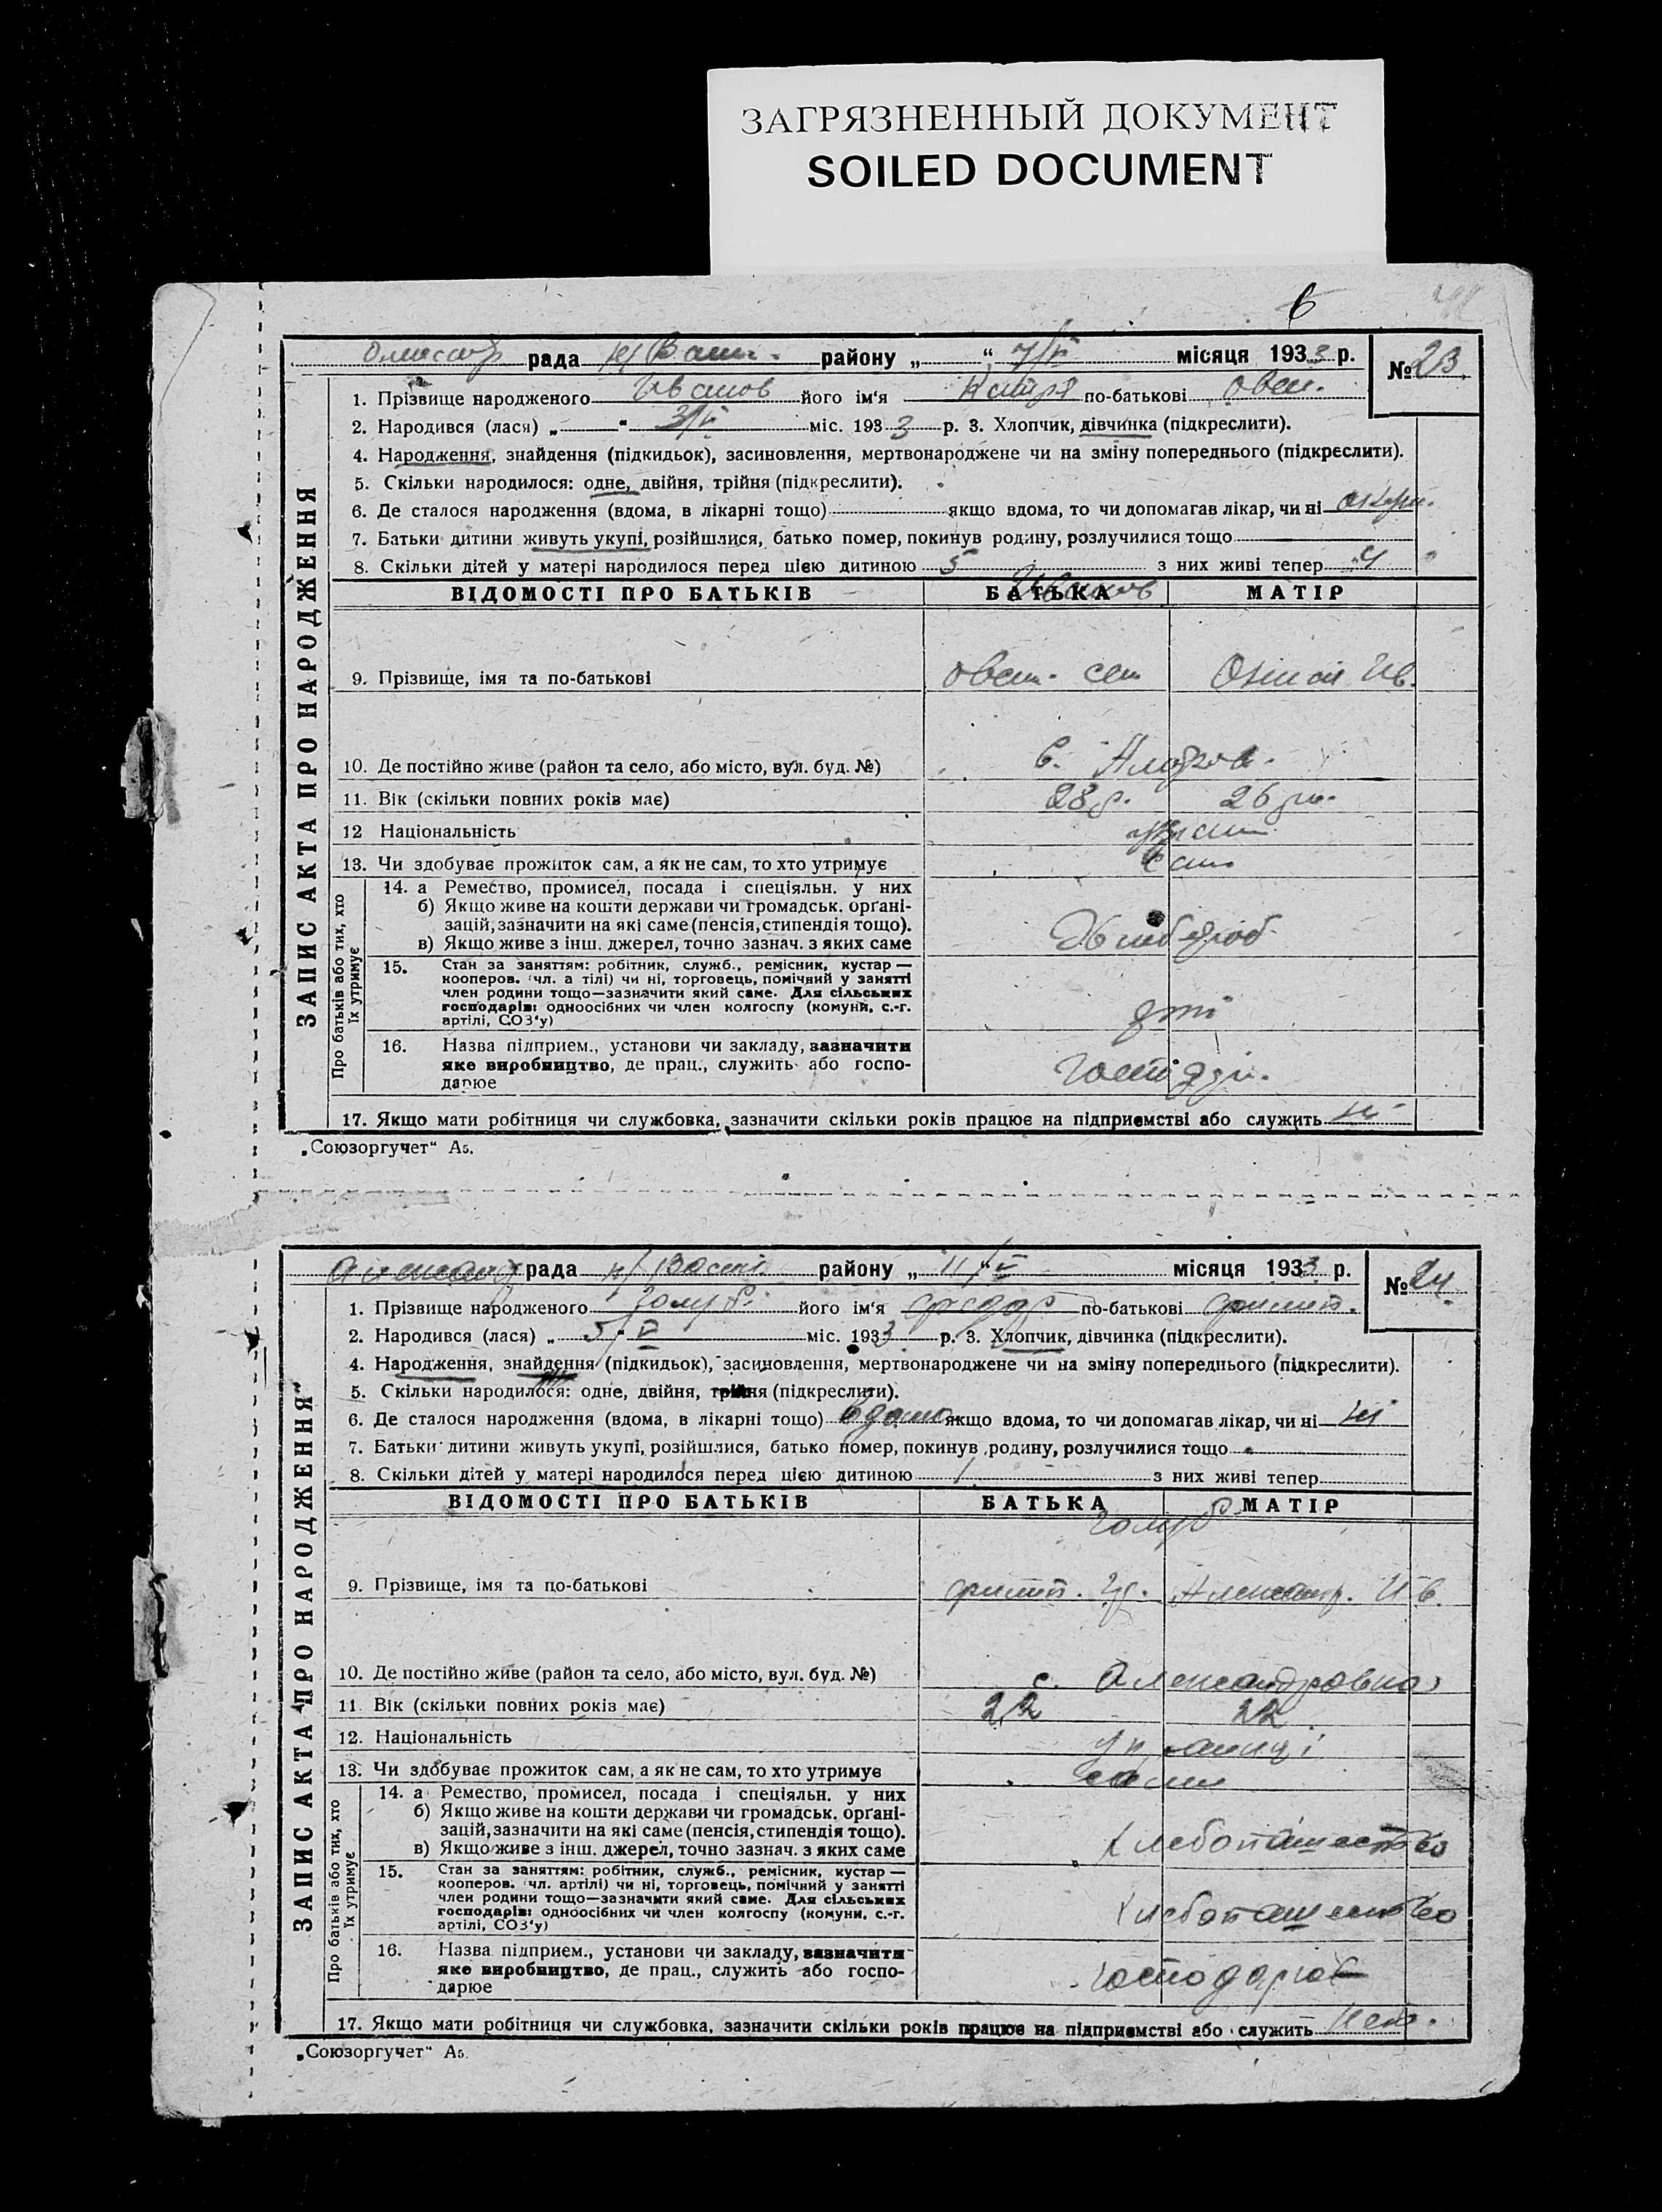 ЗАГРЯЗНЕННЫЙ ДОКУМЕНТ
SOILED DOCUMENT
6
рада району „ “ 7/V місяця 1933 р. № 23.
1. Прізвище народженого Иванов його ім'я Катря по-батькові Овен.
2. Народився (лася) „ “ 3/V міс. 1933 р. 3. Хлопчик, дівчинка (підкреслити).
4. Народження, знайдення (підкидьок), засиновлення, мертвонароджене чи на зміну попереднього (підкреслити).
5. Скільки народилося: одне, двійня, трійня (підкреслити).
6. Де сталося народження (вдома, в лікарні тощо) якщо вдома, то чи допомагав лікар, чи ні
7. Батьки дитини живуть укупі, розійшлися, батько помер, покинув родину, розлучилися тощо
8. Скільки дітей у матері народилося перед цією дитиною 5 з них живі тепер 4
ЗАПИС АКТА ПРО НАРОДЖЕННЯ
ВІДОМОСТІ ПРО БАТЬКІВ БАТЬКА МАТІР
Иванов
9. Прізвище, імя та по-батькові Ив.
10. Де постійно живе (район та село, або місто, вул. буд. №) с.
11. Вік (скільки повних років має) 28 р. 26 рк.
12 Національність
13. Чи здобуває прожиток сам, а як не сам, то хто утримує сам
Про батьків або тих, хто їх утримує
14. а Ремество, промисел, посада і спеціяльн. у них
б) Якщо живе на кошти держави чи громадськ. органі-
зацій, зазначити на які саме (пенсія, стипендія тощо).
в) Якщо живе з інш. джерел, точно зазнач. з яких саме
15. Стан за заняттям: робітник, служб., ремісник, кустар —
кооперов. чл. а тілі) чи ні, торговець, помічний у занятті
член родини тощо—зазначити який саме. Для сільських
господарів: одноосібних чи член колгоспу (комуни, с.-г.
артілі, СОЗ'у)
16. Назва підприєм., установи чи закладу, зазначити
яке виробництво, де прац., служить або госпо-
дарює
17. Якщо мати робітниця чи службовка, зазначити скільки років працює на підприємстві або служить ні
„Союзоргучет“ А5.
рада району „ 11/V “ місяця 1933 р. № 24.
1. Прізвище народженого Голуб його ім'я Федор по-батькові Филип.
2. Народився (лася) „ 5 “ V міс. 1933 р. 3. Хлопчик, дівчинка (підкреслити).
4. Народження, знайдення (підкидьок), засиновлення, мертвонароджене чи на зміну попереднього (підкреслити).
5. Скільки народилося: одне, двійня, трійня (підкреслити).
6. Де сталося народження (вдома, в лікарні тощо) вдома якщо вдома, то чи допомагав лікар, чи ні ні
7. Батьки дитини живуть укупі, розійшлися, батько помер, покинув родину, розлучилися тощо
8. Скільки дітей у матері народилося перед цією дитиною 1 з них живі тепер
ЗАПИС АКТА ПРО НАРОДЖЕННЯ“
ВІДОМОСТІ ПРО БАТЬКІВ БАТЬКА МАТІР
Голуб
9. Прізвище, імя та по-батькові Филип. Гр. Александр. Ив.
10. Де постійно живе (район та село, або місто, вул. буд. №) с. Александровка
11 Вік (скільки повних років має) 22 22
12. Національність українці
13. Чи здобуває прожиток сам, а як не сам, то хто утримує сами
Про батьків або тих, хто їх утримує
14. а Ремество, промисел, посада і спеціяльн. у них
б) Якщо живе на кошти держави чи громадськ. органі-
зацій, зазначити на які саме (пенсія, стипендія тощо).
в) Якщо живе з інш. джерел, точно зазнач. з яких саме
хлебопашество
15. Стан за заняттям: робітник, служб., ремісник, кустар —
кооперов. чл. артілі) чи ні, торговець, помічний у занятті
член родини тощо—зазначити який саме. Для сільських
господарів: одноосібних чи член колгоспу (комуни, с.-г.
артілі, СОЗ'у)
хлебопашество
16. Назва підприєм., установи чи закладу, зазначити
яке виробництво, де прац., служить або госпо-
дарює
господарює
17. Якщо мати робітниця чи службовка, зазначити скільки років працює на підприємстві або служить нет.
„Союзоргучет“ А5.